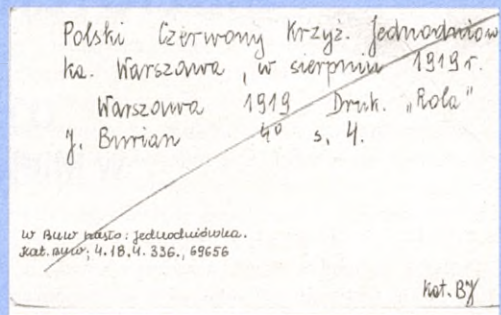 Polski Czerwony Krzyż. Jednodniów
ka. Warszawa, w sierpniu 1919 r.
Warszawa 1919 Druk. „Rola"
J. Burian 4° s. 4.
W Buw hasło: Jednodniówka.
Kat. Buw; 4.18.4.336., 69656
Kat. BJ